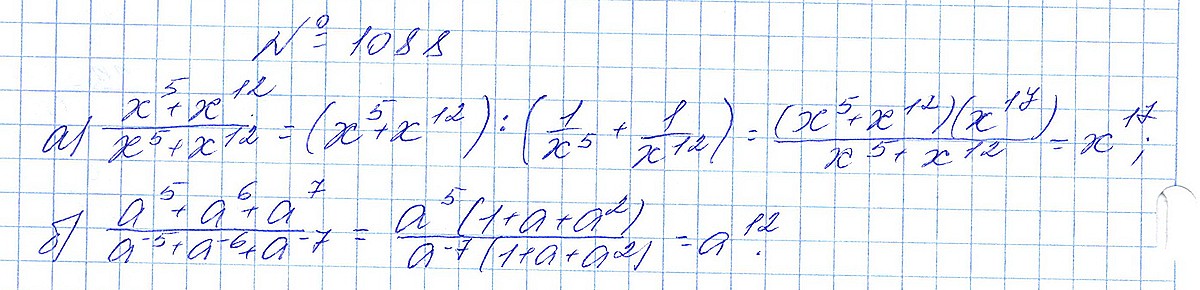 № 1088
а) (x^5+x^12)/(x^5+x^12) = (x^5+x^12) : (1/x^5 + 1/x^12) = ((x^5+x^12)(x^17))/(x^5+x^12) = x^17;
б) (a^5+a^6+a^7)/(a^-5+a^-6+a^-7) = (a^5(1+a+a^2))/(a^-7(1+a+a^2)) = a^12.